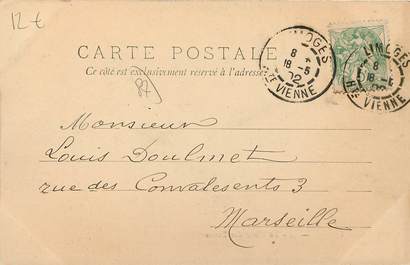 12€
CARTE POSTALE
Ce côté est exclusivement réservé à l'adresse.
87
LIMOGES
8
18 -5
02
HTE VIENNE
LIMOGES
8
18 -5
02
HTE VIENNE
Monsieur
Louis Doulmet
rue des Convalesents 3
Marseille